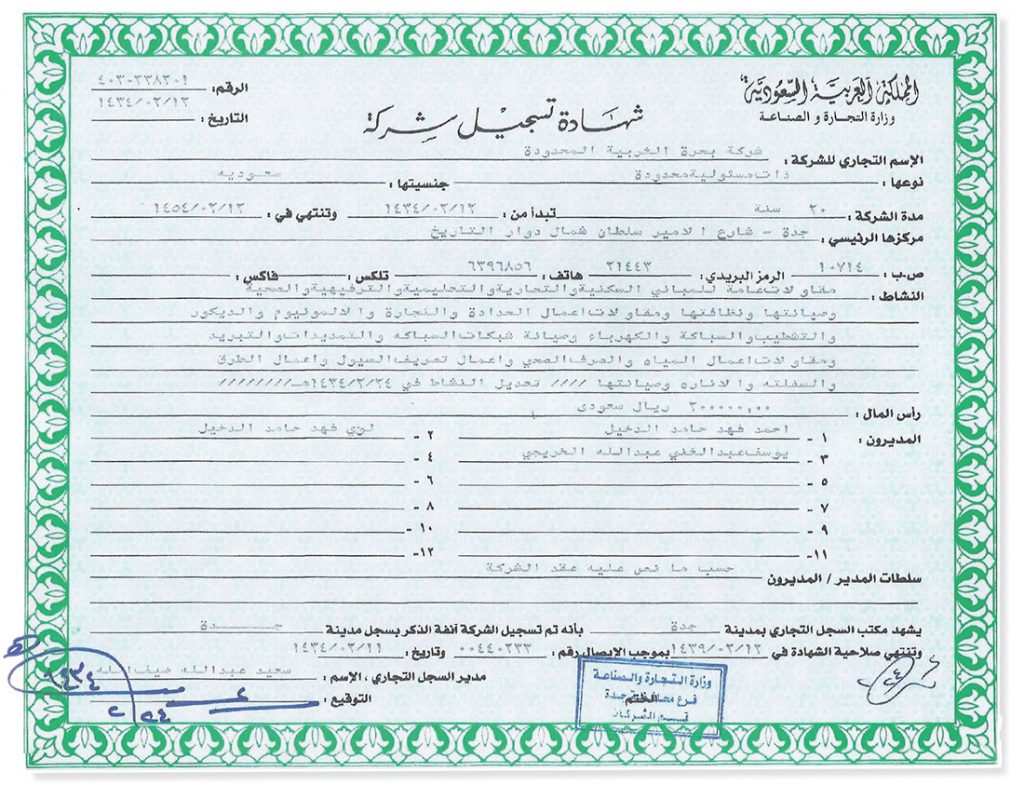 المملكة العربية السعودية
وزارة التجارة و الصناعة
الرقم: ٤٠٣٠٢٣٨٣٠١
التاريخ: ١٤٣٤/٠٢/١٢
شهادة تسجيل شركة
الإسم التجاري للشركة: شركة بحرة الغربية المحدودة
نوعها: ذات مسئولية محدودة جنسيتها: سعوديه
مدة الشركة: ٢٠ سنة تبدأ من: ١٤٣٤/٠٢/١٢ وتنتهي في: ١٤٥٤/٠٢/١٢
مركزها الرئيسي: جدة - شارع الامير سلطان شمال دوار التاريخ
ص.ب: ١٠٧١٤ الرمز البريدي: ٢١٤٤٣ هاتف: ٦٣٩٦٨٥٦ تلكس: فاكس:
النشاط: مقاولات عامة للمباني السكنية والتجارية والتعليمية والترفيهية والصحية
وصيانتها ونظافتها ومقاولات اعمال الحدادة والنجارة والالومونيوم والديكور
والتشطيب والسباكة والكهرباء وصيانة شبكات السباكه والتمديدات والتبريد
ومقاولات اعمال المياه والصرف الصحي واعمال تصريف السيول واعمال الطرق
والسفلته والاناره وصيانتها //// تعديل النشاط في ١٤٣٤/٢/٢٤هـ-////////
رأس المال: ٢٠٠٠٠٠٠,٠٠ ريال سعودى
المديرون: ١ - احمد فهد حامد الدخيل ٢ - لوي فهد حامد الدخيل
٣ - يوسف عبدالغني عبدالله الخريجي ٤ -
٥ - ٦ -
٧ - ٨ -
٩ - ١٠ -
١١ - ١٢ -
سلطات المدير / المديرون حسب ما نص عليه عقد الشركة
يشهد مكتب السجل التجاري بمدينة جدة بأنه تم تسجيل الشركة آنفة الذكر بسجل مدينة جـــــدة
وتنتهي صلاحية الشهادة في ١٤٣٩/٠٢/١٢ بموجب الايصال رقم: ٠٠٤٤٠٢٣٣ وتاريخ: ١٤٣٤/٠٢/١١
مدير السجل التجاري، الإسم: سعيد عبدالله ضيف الله
التوقيع:
الختم
وزارة التجارة والصناعة
قسم الشركات